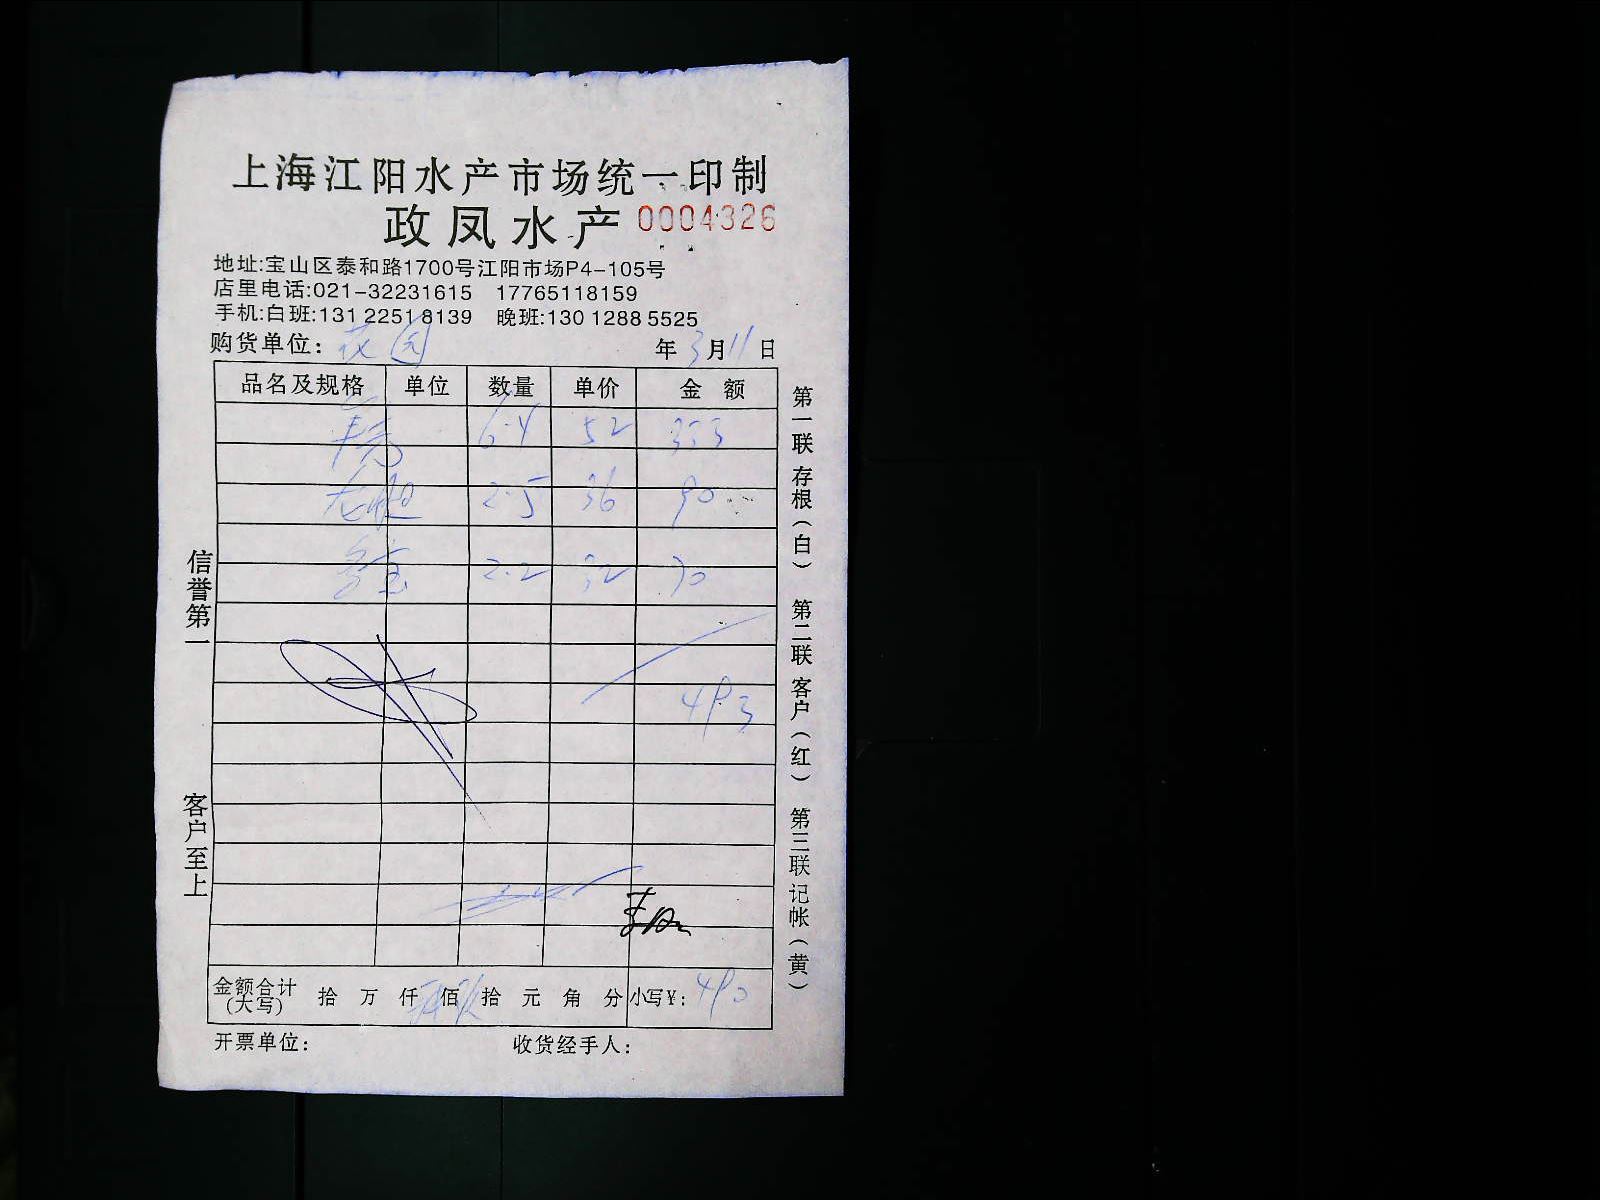 上海江阳水产市场统一印制
政凤水产 0004326
地址:宝山区泰和路1700号江阳市场P4-105号
店里电话:021-32231615 17765118159
手机:白班:131 2251 8139 晚班:130 1288 5525
购货单位: 花园 年 3月11日
品名及规格 单位 数量 单价 金 额
6.4 52 333
2.5 36 90
多宝 2.2 32 70
493
金额合计(大写) 拾 万 仟 佰 拾 元 角 分 小写¥: 490
开票单位: 收货经手人:
信誉第一 客户至上
第一联 存根(白) 第二联 客户(红) 第三联 记帐(黄)